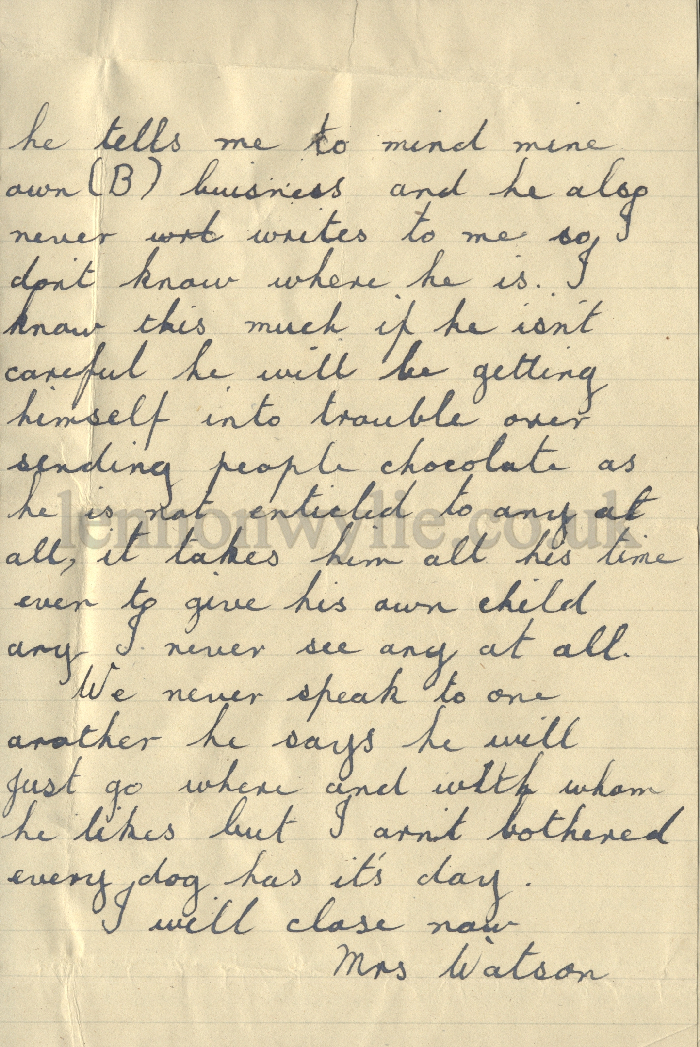 he tells me to mind mine
own (B) buisness and he also
never wrt writes to me so I
don't know where he is. I
know this much if he isn't
careful he will be getting
himself into trouble over
sending people chocolate as
he is not enticled to any at
lennonwylie.co.uk
all, it takes him all his time
even to give his own child
any I never see any at all.
We never speak to one
another he says he will
just go where and with whom
he likes but I arn't bothered
every dog has it's day.
I will close now
Mrs Watson